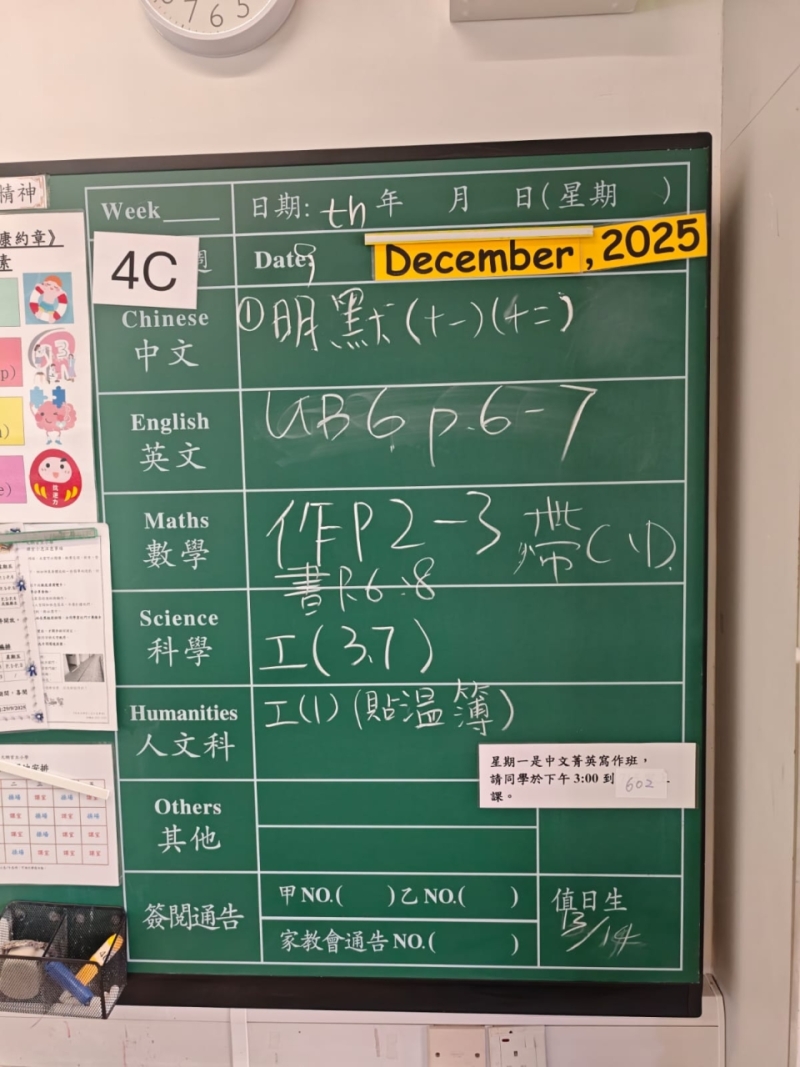 7 6 5
精神
Week____ 日期: th 年 月 日(星期 )
4C 週 Date: December, 2025
康約章》
素
Chinese ①明默(十一)(十二)
中文
English UB6 p.6-7
英文
Maths 作P2-3 帶C、D.
數學 書P.6、8
Science 工(3、7)
科學
Humanities 工(1)(貼溫簿)
人文科
星期一是中文菁英寫作班，
請同學於下午 3:00 到 602
課。
Others
其他
簽閱通告 甲 NO.( )乙 NO.( )
家教會通告 NO.( )
值日生
13/14